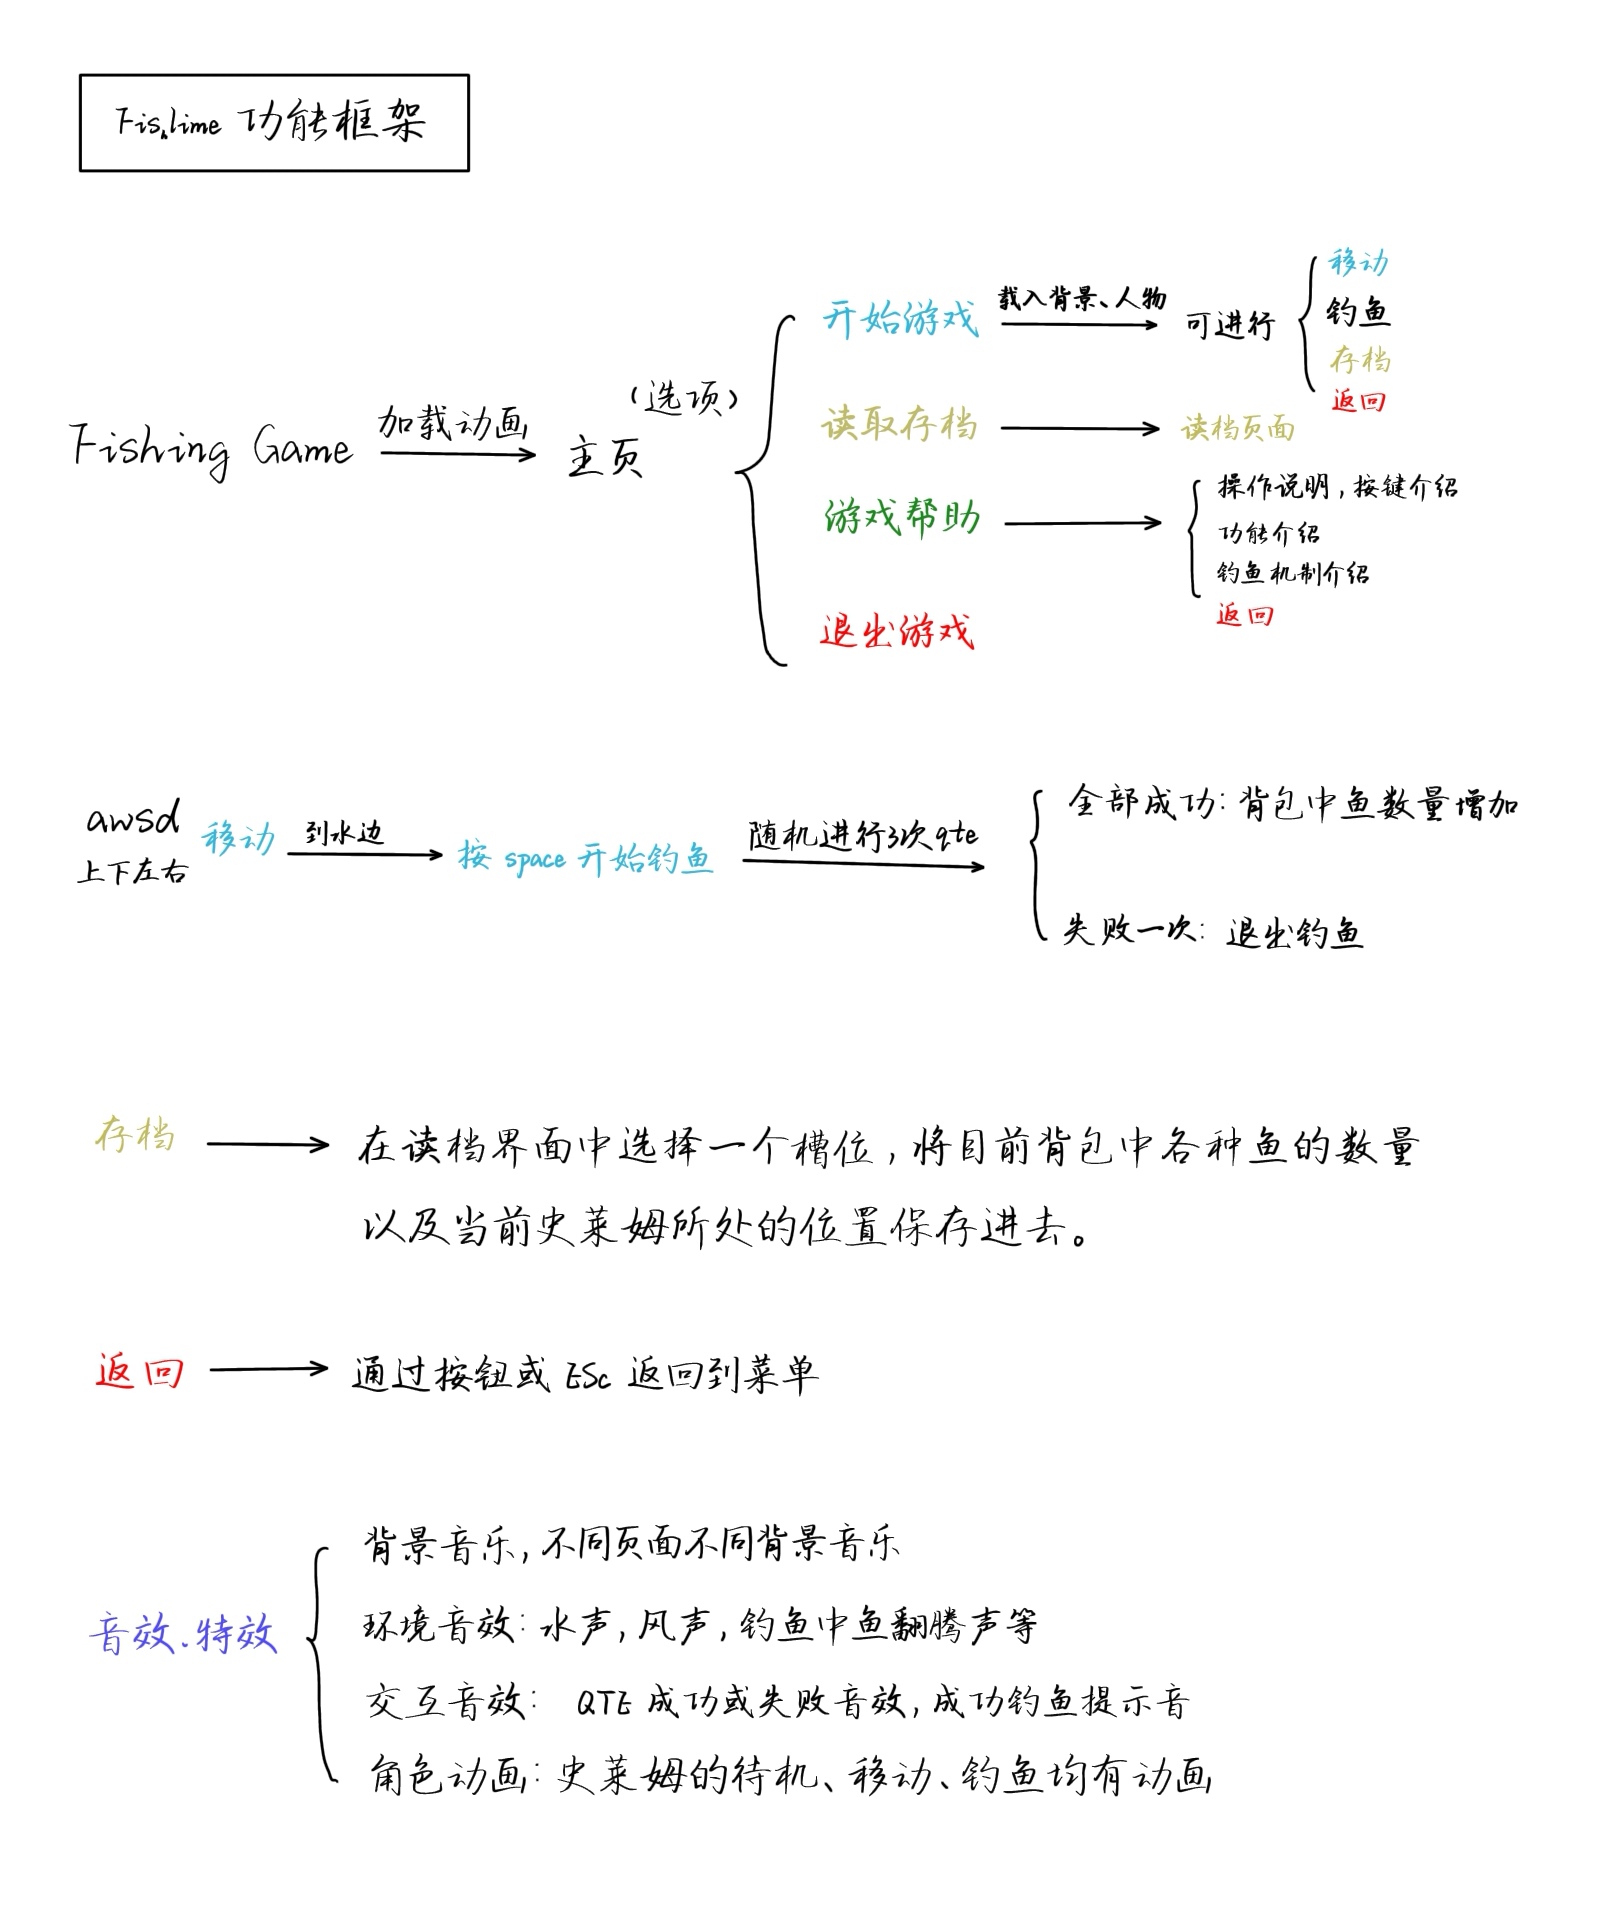 Fishlime 功能框架
移动
开始游戏 载入背景、人物 可进行 钓鱼
存档
返回
(选项)
Fishing Game 加载动画 主页
读取存档 读档页面
游戏帮助 操作说明,按键介绍
功能介绍
钓鱼机制介绍
返回
退出游戏
awsd
上下左右
移动 到水边 按 space 开始钓鱼 随机进行3次qte
全部成功: 背包中鱼数量增加
失败一次: 退出钓鱼
存档 在读档界面中选择一个槽位,将目前背包中各种鱼的数量
以及当前史莱姆所处的位置保存进去。
返回 通过按钮或 ESc 返回到菜单
音效、特效
背景音乐,不同页面不同背景音乐
环境音效: 水声,风声,钓鱼中鱼翻腾声等
交互音效: QTE 成功或失败音效,成功钓鱼提示音
角色动画: 史莱姆的待机、移动、钓鱼均有动画